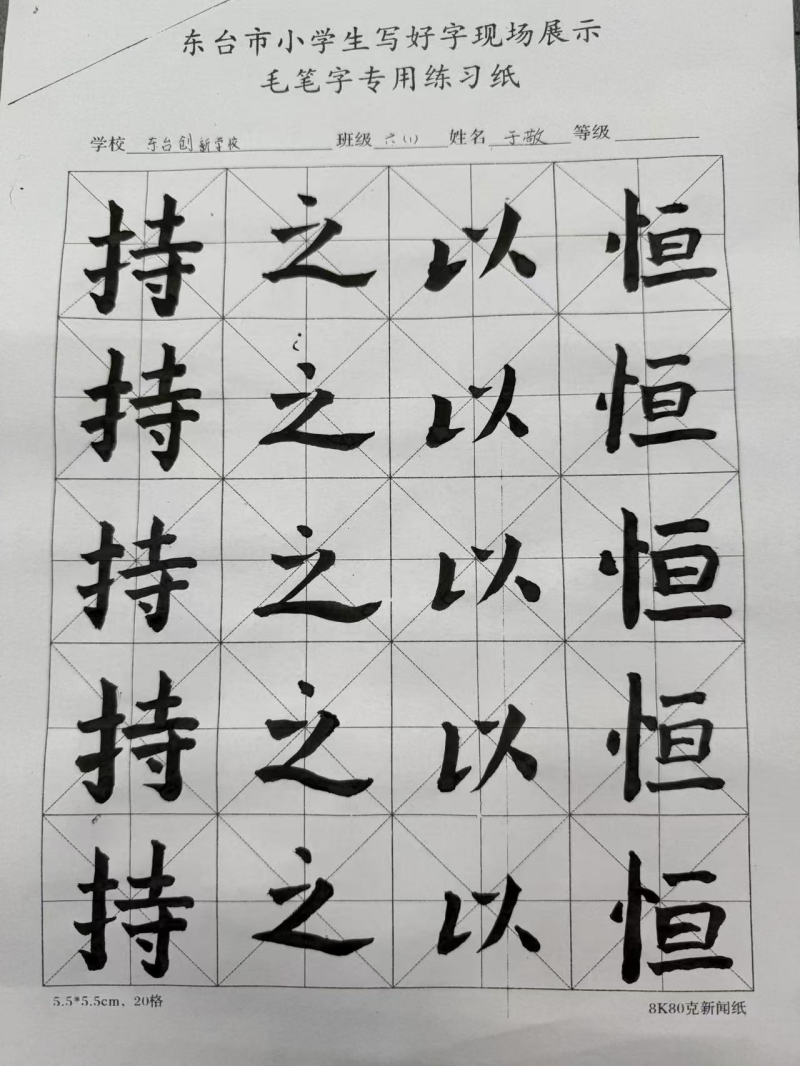 东台市小学生写好字现场展示
毛笔字专用练习纸
学校 东台创新学校 班级 六(1) 姓名 于敬 等级
持之以恒
持之以恒
持之以恒
持之以恒
持之以恒
5.5*5.5cm、20格 8K80克新闻纸